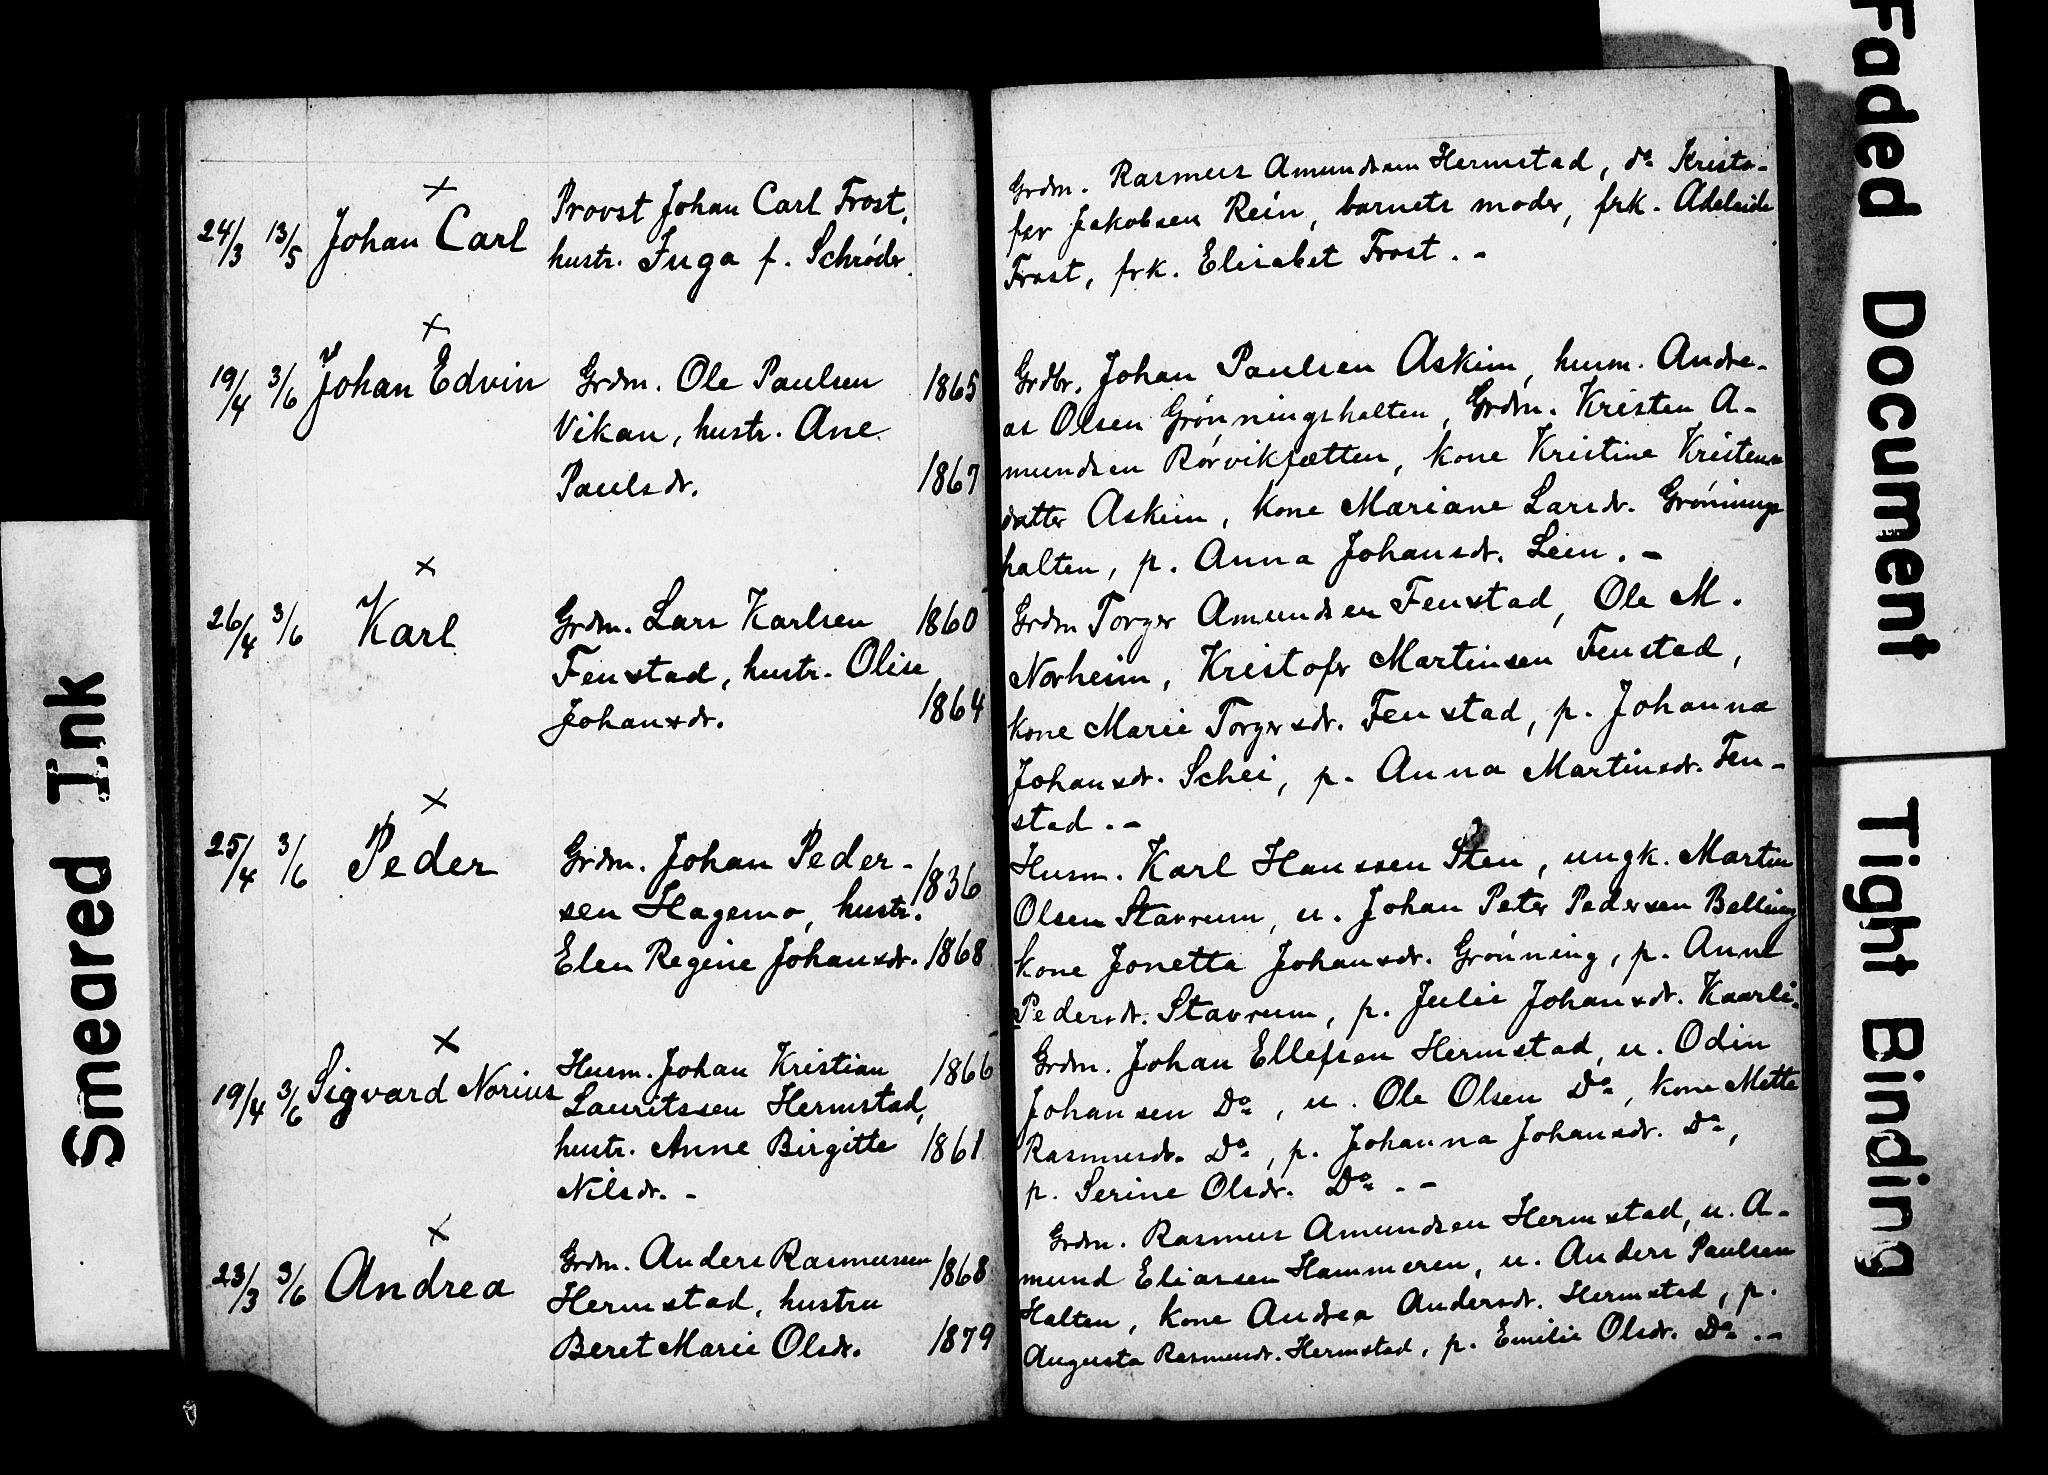 24/3 13/5 Johan Carl
Provst Johan Carl Frost,
hustr. Inga f. Schrøder.
19/4 3/6 Johan Edvin
Grdm. Ole Paulsen 1865
Vikan, hustr. Ane
Paulsdr. 1867
26/4 3/6 Karl
Grdm. Lars Karlsen 1860
Fenstad, hustr. Oline
Johansdr. 1864
25/4 3/6 Peder
Grdm. Johan Peder-
sen Hagemo, hustr. 1836
Elen Regine Johansdr. 1868
19/4 3/6 Sigvard Norius
Husm. Johan Kristian 1866
Lauritssen Hermstad,
hustr. Anne Birgitte 1861
Nilsdr. -
23/3 3/6 Andrea
Grdm. Anders Rasmussen 1868
Hermstad, hustru
Beret Marie Olsdr. 1879
Grdm. Rasmus Amundsen Hermstad, do Kristo-
fer Jakobsen Rein, barnets moder, frk. Adelaide
Frost, frk. Elisabet Frost. -
Grdbr. Johan Paulsen Askim, husm. Andre-
as Olsen Grønningshalten, Grdm. Kristen A-
mundsen Rørvikjætten, kone Kristine Kristens-
datter Askim, kone Mariane Larsdr. Grønnings
halten, p. Anna Johansdr. Lein. -
Grdm Torger Amundsen Fenstad, Ole M.
Norheim, Kristofer Martinsen Fenstad,
kone Marie Torgersdr. Fenstad, p. Johanna
Johansdr. Schei, p. Anna Martinsdr. Fen-
stad. -
Husm. Karl Hanssen Sten, ungk. Martin
Olsen Stavrum, u. Johan Peter Pedersen Belling
kone Jonetta Johansdr. Grønning, p. Anne
Pedersdr. Stavrum, p. Julie Johansdr. Kaarli.
Grdm. Johan Ellefsen Hermstad, u. Odin
Johansen Do, u. Ole Olsen Do, kone Mette
Rasmusdr. Do, p. Johanna Johansdr. Do,
p. Serine Olsdr. Do. -
Grdm. Rasmus Amundsen Hermstad, u. A-
mund Eliassen Hammeren, u. Anders Paulsen
Halten, kone Andrea Andersdr. Hermstad, p.
Augusta Rasmusdr. Hermstad, p. Emilie Olsdr. Do. -
Smeared Ink
Faded Document
Tight Binding